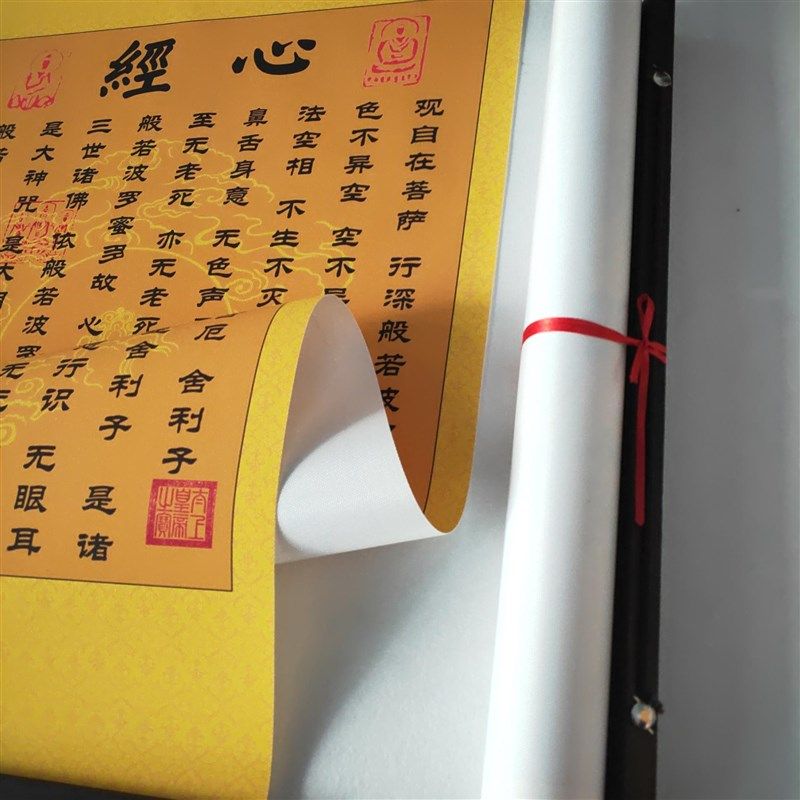 心經
观自在菩萨 行深般若波
色不异空 空不异
法空相 不生不灭
鼻舌身意 无色声
至无老死 亦无老死
般若波罗蜜多故 心
三世诸佛 依般若波罗
是大神咒 是大
般若
厄 舍利子
舍利子 是诸
行识 无眼耳
无
太上皇帝之寶